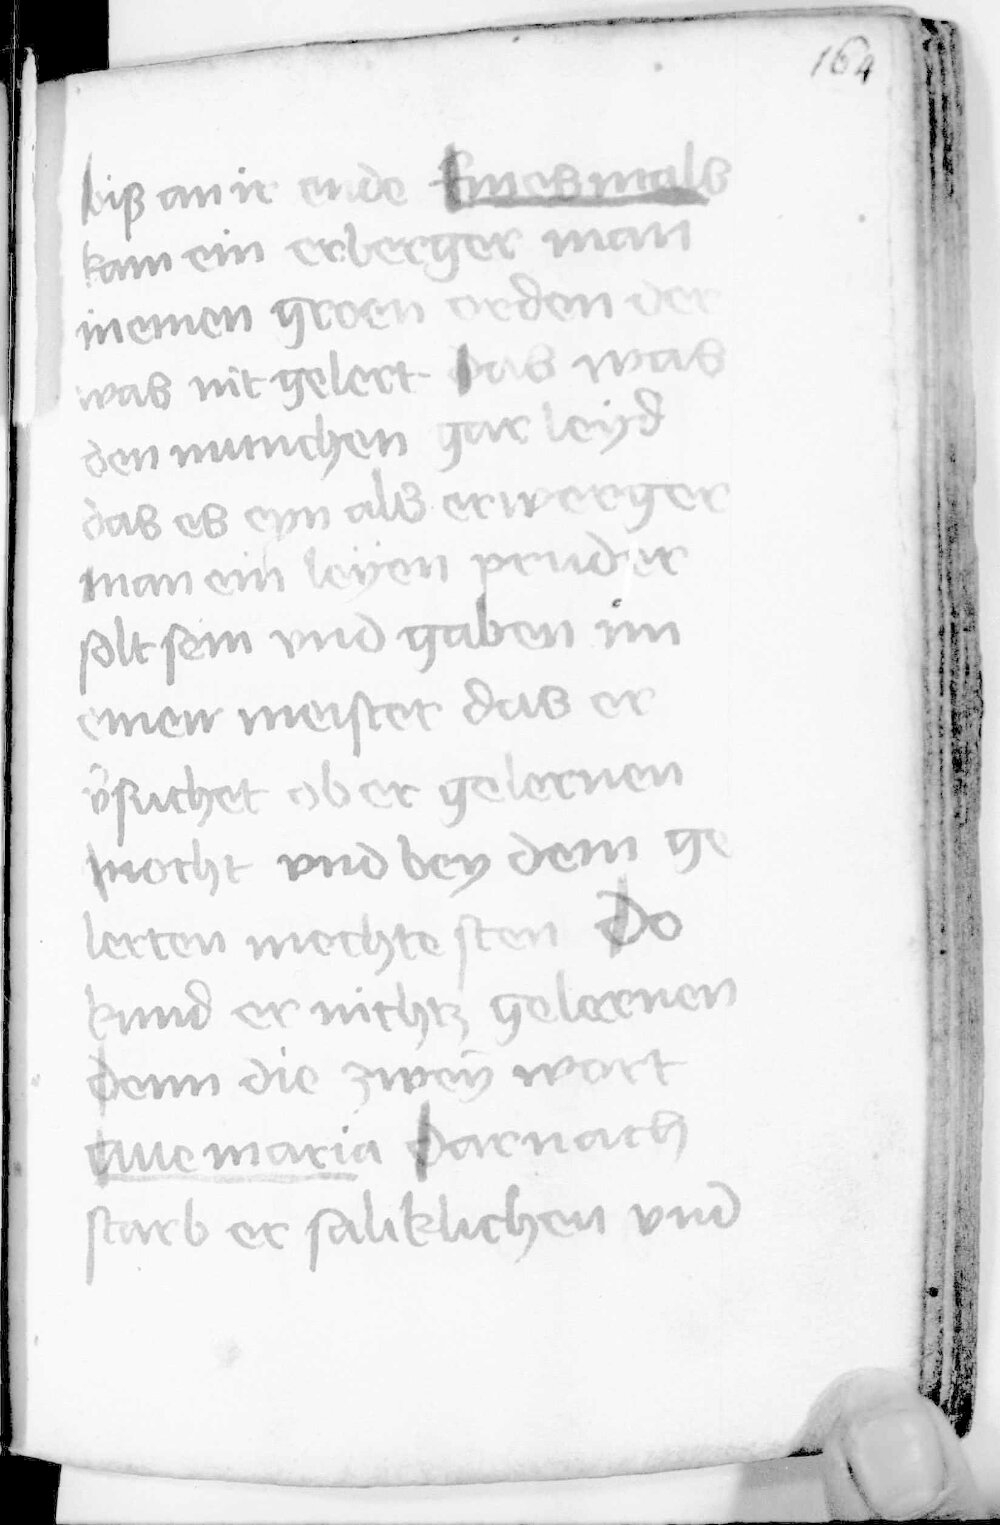 164
biß an ir ende Einesmals
kam ein erberger man
in einen groen orden der
was nit gelert Das was
den munchen gar leyd
das es eyn als erwerger
man ein leyen pruder
solt sein vnd gaben im
einen meister das er
v̄suchet ob er gelernen
mocht vnd bey dem ge
lerten mechte sten Do
kund er nichtz gelernen
denn die zwey wort
Aue maria Darnach
starb er saliklichen vnd